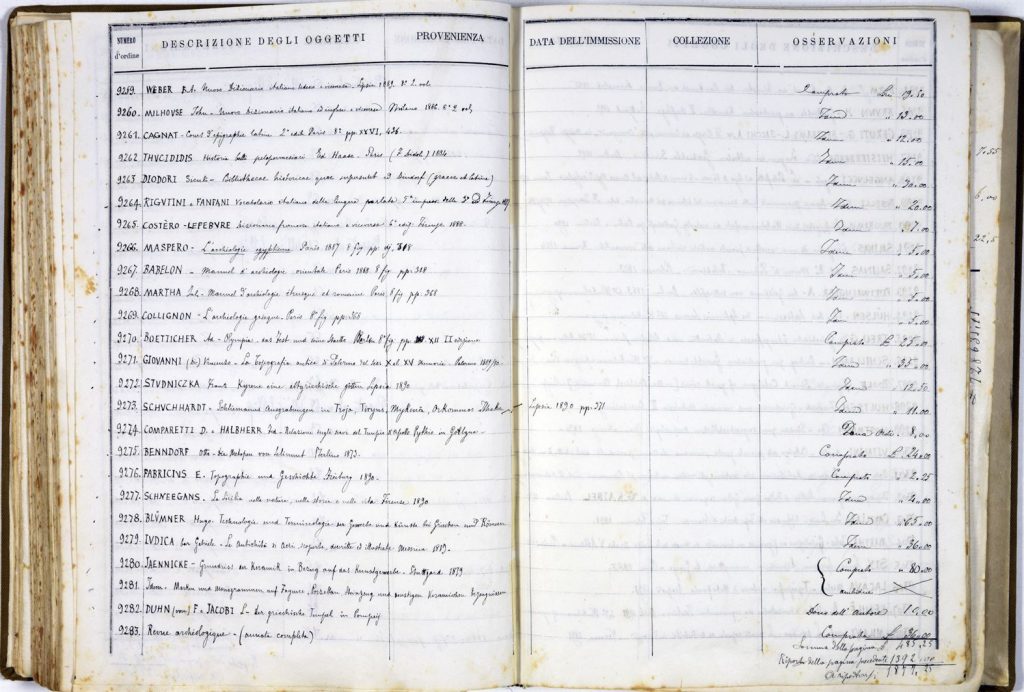 NUMERO d'ordine DESCRIZIONE DEGLI OGGETTI PROVENIENZA DATA DELL'IMMISSIONE COLLEZIONE OSSERVAZIONI
9259. WEBER Nuovo Dizionario italiano tedesco e viceversa. Lipsia 8° 2 vol. Comprato Lire
9260. MILHOUSE John. Nuovo dizionario italiano ed inglese e viceversa Milano 8° 2 vol. Idem 13.00
9261. CAGNAT - Cours d'epigraphie latine 2ª ediz. Paris 8° pp. XXVI, 436. Idem " 12.00
9262. THUCIDIDIS Historia belli peloponnesiaci Ed Haase - Paris (F. Didot) Idem " 15.00
9263. DIODORI Siculi - Bibliothecae historicae quae supersunt ed Dindorf (graece et latine) Idem " 30.00
9264. RIGUTINI e FANFANI Vocabolario italiano della lingua parlata Idem " 20.00
9265. COSTÈRO - LEFEBVRE dizionario francese italiano e viceversa 6ª ediz. Firenze " 7.00
9266. MASPERO - L'archéologie egyptienne Paris 1887 8° fig pp. Idem " 5.00
9267. BABELON - Manuel d'archeologie orientale Paris 1888 8° fig. pp. 318 Idem " 5.00
9268. MARTHA Jul. - Manuel d'archéologie etrusque et romaine Paris 8° fig pp 368 Idem " 5.00
9269. COLLIGNON - L'archéologie grecque. Paris 8° fig pp. 368 Idem " 5.00
9270. BOETTICHER Ad. - Olympia, das Fest und seine Staette Berlin 8° fig. pp. XII II edizione Comprato L. 25.00
9271. GIOVANNI (di) Vincenzo - La Topografia antica di Palermo dal sec. X al XV Memorie - Palermo 1889/90 Idem " 35.00
9272. STUDNICZKA Franz Kyrene eine altgriechische göttin Lipsia 1890 Idem " 12.50
9273. SCHUCHHARDT - Schliemanns Ausgrabungen in Troja, Tiryns, Mykenä, Orkomenos Ithaka - Lipsia 1890 pp. 371 Idem " 11.00
9274. COMPARETTI D. e HALBHERR Fed. - Relazione sugli scavi del Tempio d'Apollo Pythio in Gortyna - 8.00
9275. BENNDORF Otto - Die Metopen von Selinunt Berlino 1873. Comprato L. 24.00
9276. FABRICIUS E. Topographie und Geschichte Freiburg 1890. Comprato " 2.25
9277. SCHNEEGANS. La Sicilia nella natura, nella storia e nella vita Firenze 1890 Idem " 4.00
9278. BLÜMNER Hugo Technologie und Terminologie der Gewerbe und Künste bei Griechen und Römern Idem " 65.00
9279. IUDICA bar. Gabriele. Le Antichità di Acri, scoperte, descritte ed illustrate Messina 1819. Idem " 36.00
9280. JAENNICKE - Grundriss der Keramik in Bezug auf das Kunstgewerbe. Stuttgard 1879 Comprato " 80.00
9281. Idem. Marken und Monogrammen auf Fayence, Porzellan, Steinzeug und sonstigen Keramischen Erzeugnissen
9282. DUHN (von) F. e JACOBI L - Der griechische Tempel in Pompeij Dono dell'Autore " 10.00
9283. Revue archéologique - (annata completa) Comprato L. 36.00
Somma della pagina L. 485.25
Riporto della pagina precedente 1392
A riportarsi
7.55
6,00
22,5